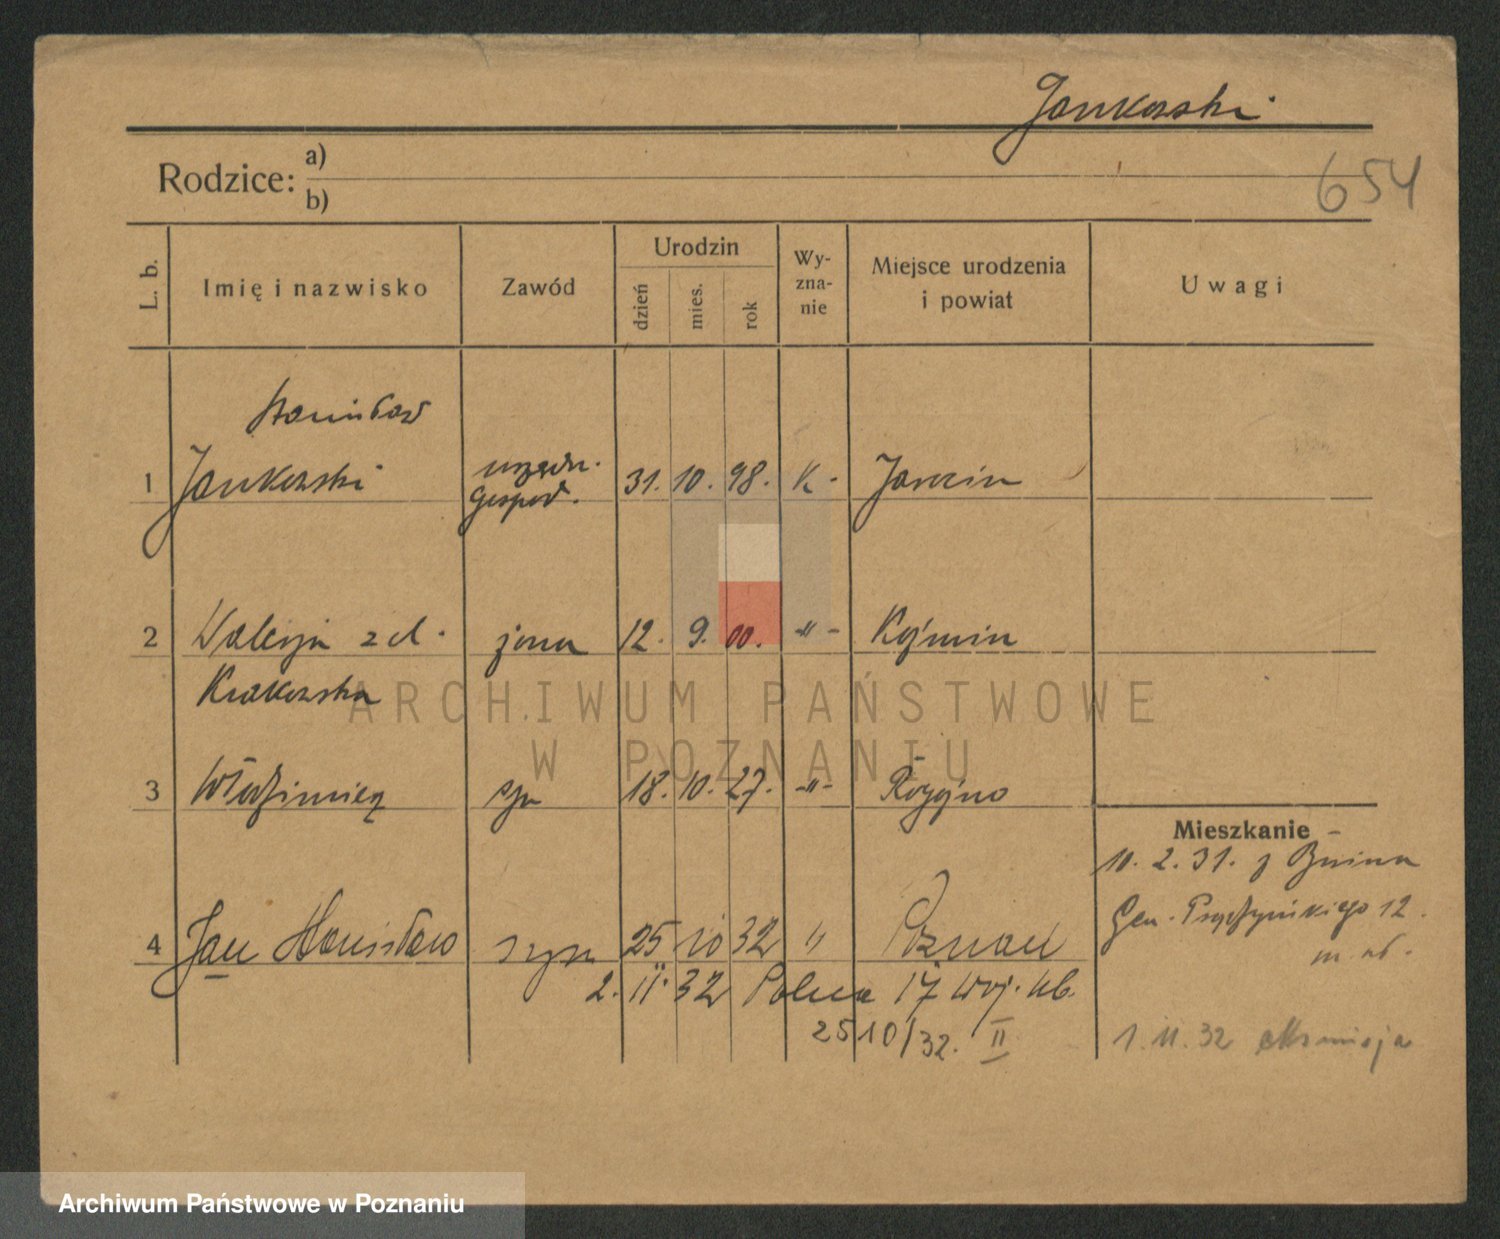 Jankowski
654
Rodzice: a)
b)
L. b. Imię i nazwisko Zawód Urodzin dzień mies. rok Wy-zna-nie Miejsce urodzenia i powiat Uwagi
Stanisław
1 Jankowski urzędn. gospod. 31. 10. 98. K. Jarocin
2 Walerja z d. żona 12. 9. 00. -"- Koźmin
Krakowska
3 Włodzimierz syn 18. 10. 27. -"-
Mieszkanie
10. 2. 31. z Bnina
Gen. Prądzyńskiego 12.
m. ab.
4 Jan Stanisław syn 25 10 32 " Poznań
2. 11. 32 17 Woj. ub.
25 10/32. II
1. 11. 32 eksmisja
ARCHIWUM PAŃSTWOWE
W POZNANIU
Archiwum Państwowe w Poznaniu